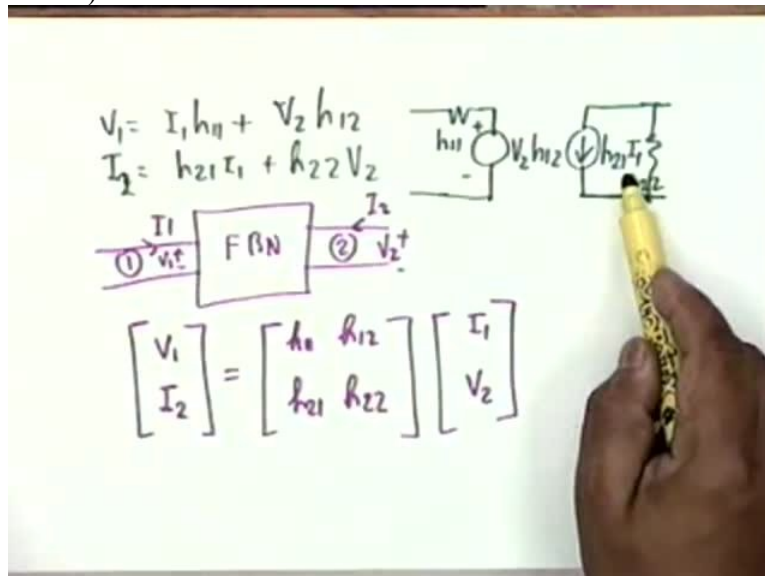 V1 = I1 h11 + V2 h12
I2 = h21 I1 + h22 V2
h11 + - V2 h12 h21 I1
I1 I2
① V1 + - FBN ② V2 + -
[V1 I2] = [h11 h12 h21 h22] [I1 V2]